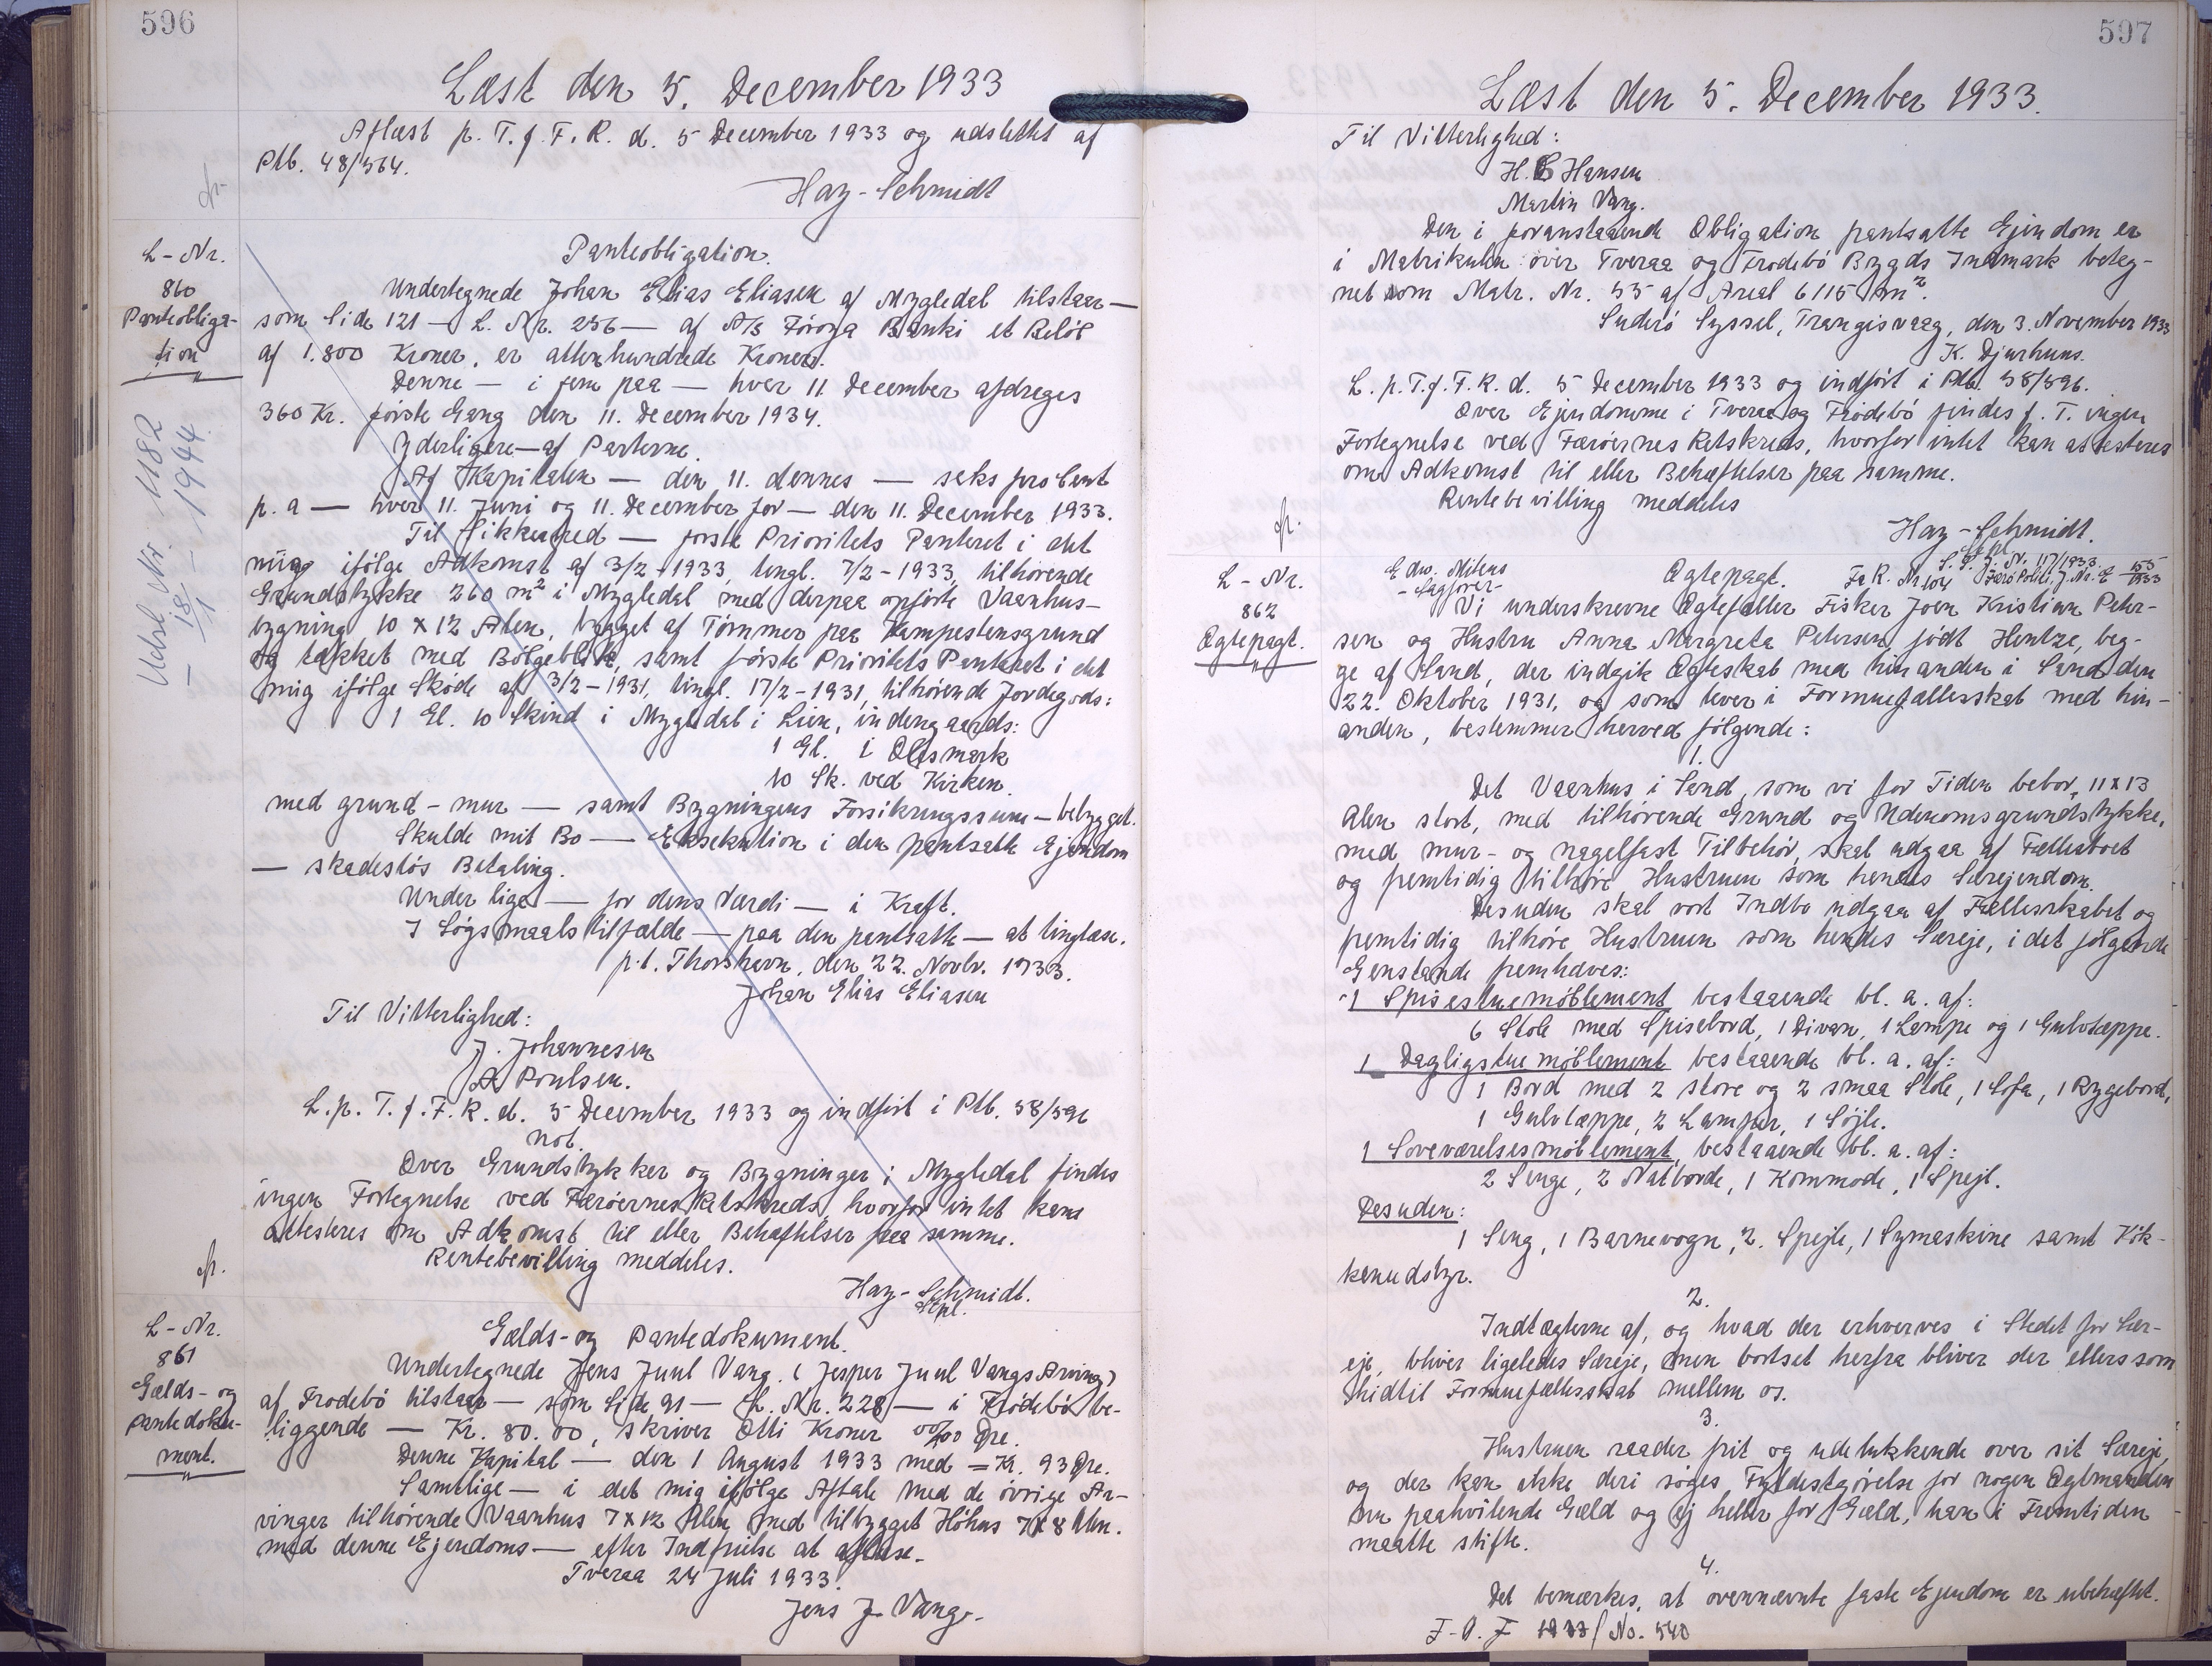 596
Læst den 5. December 1933
Aflæst p. T. f. F. R. d. 5 December 1933 og udslettet af
Ptb. 48/564.
Hay-Schmidt
L-Nr.
860
Panteobliga-
tion
Udsl. Nr. 1182
18/1 - 1944
Panteobligation.
Undertegnede Johan Elias Eliasen af Mygledal tilstaar —
som Side 121 — L. Nr. 256 — af A/S Föroya Banki et Belöb
af 1.800 Kroner, er attenhundrede Kroner.
Denne — i fem paa — hver 11 December afdrages
360 Kr. förste Gang den 11. December 1934.
Yderligere — af Parterne.
Af Kapitalen — den 11. dennes — seks pro Cent
p. a — hver 11. Juni og 11. December for — den 11. December 1933.
Til Sikkerhed — förste Prioritets Panteret i det
mig ifölge Adkomst af 3/2-1933, tingl. 7/2-1933, tilhörende
Grundstykke 260 m² i Mygledal med derpaa opförte Vaanhus-
bygning 10 x 12 Alen, bygget af Tömmer paa Kampestensgrund
og tækket med Bölgeblik, samt förste Prioritets Panteret i det
mig ifölge Sköde af 3/2-1931, tingl. 17/2-1931, tilhörende Jordegods:
1 Gl. 10 Skind i Mygledal i Lien, indengaards:
1 Gl. i Olesmark
10 Sk. ved Kirken.
med grund-mur — samt Bygningens Forsikringssum — bebygget.
Skulde mit Bo — Eksekution i den pantsatte Ejendom
— skadeslös Betaling.
Under lige — for dens Værdi — i Kraft.
I Sögsmaalstilfælde — paa den pantsatte — at tinglæse.
p.t. Thorshavn, den 22. Novbr. 1933.
Johan Elias Eliasen
Til Vitterlighed:
J. Johannesen
A Poulsen.
L. p. T. f. F. R. d. 5 December 1933 og indfört i Ptb. 58/596
not.
Over Grundstykker og Bygninger i Mygledal findes
ingen Fortegnelse ved Færöernes Retskreds, hvorfor intet kan
attesteres om Adkomst til eller Behæftelser paa samme.
Rentebevilling meddeles.
Hay-Schmidt.
Stpl.
L-Nr.
861
Gælds- og
pantedoku-
ment.
Gælds- og Pantedokument.
Undertegnede Jens Juul Vang. (Jesper Juul Vangs Arving)
af Frodebö tilstaar — som Side 91 — L. Nr. 228 — i Frödebö be-
liggende — Kr. 80.00, skriver Otti Kroner 00/00 Öre.
Denne Kapital — den 1 August 1933 med = Kr. 93 Öre.
Samtlige — i det mig ifölge Aftale med de övrige Ar-
vinger tilhörende Vaanhus 7x12 Alen med tilbygget Höhus 7x8 Alen.
med denne Ejendoms — efter Indfrielse at aflæse.
Tveraa 24 Juli 1933.
Jens J. Vang.
597
Læst den 5. December 1933.
Til Vitterlighed:
H. C Hansen
Martin Vang.
Den i foranstaaende Obligation pantsatte Ejendom er
i Matrikulen over Tveraa og Frodebö Bygds Indmark beteg-
net som Matr. Nr. 55 af Areal 6115 m².
Suderö Syssel, Trangisvaag, den 3. November 1933
K. Djurhuus.
L. p. T. f. F. R. d. 5 December 1933 og indfört i Ptb. 58/596.
Over Ejendomme i Tveraa og Frödebö findes f. T. ingen
Fortegnelse ved Færöernes Retskreds, hvorfor intet kan attesteres
om Adkomst til eller Behæftelser paa samme.
Rentebevilling meddeles
Hay-Schmidt.
Stpl.
L-Nr.
862
Ægtepagt.
Edw. Mitens
- Sagförer -
Ægtepagt.
S. S. J. Nr. 117/1933
Fa R. Nr 104 Færö Politi J. Nr. E 155/1933
Vi underskrevne Ægtefæller Fisker Joen Kristian Peter-
sen og Hustru Anna Margreta Petersen, födt Hentze, beg-
ge af Sand, der indgik Ægteskab med hinanden i Sand den
22. Oktober 1931, og som lever i Formuefællesskab med hin-
anden, bestemmer herved fölgende:
1.
Det Vaanhus i Sand, som vi for Tiden bebor, 11x13
Alen stort, med tilhörende Grund og Udenomsgrundstykke,
med mur- og nagelfast Tilbehör, skal udgaa af Fællesboet
og fremtidig tilhöre Hustruen som hendes Særejendom.
Desuden skal vort Indbo udgaa af Fællesskabet og
fremtidig tilhöre Hustruen som hendes Særeje, idet fölgende
Genstande fremhæves:
1 Spisestuemöblement bestaaende bl. a. af:
6 Stole med Spisebord, 1 Divan, 1 Lampe og 1 Gulvtæppe.
1 Dagligstuemöblement bestaaende bl. a. af:
1 Bord med 2 store og 2 smaa Stole, 1 Sofa, 1 Rygebord,
1 Gulvtæppe, 2 Lamper, 1 Söjle.
1 Soveværelsesmöblement, bestaaende bl. a. af:
2 Senge, 2 Natborde, 1 Kommode, 1 Spejl.
Desuden:
1 Seng, 1 Barnevogn, 2. Spejle, 1 Symaskine samt Kök-
kenudstyr.
2.
Indtægterne af, og hvad der erhverves i Stedet for Sær-
eje, bliver ligeledes Særeje, men bortset herfra bliver der ellers som
hidtil Formuefællesskab mellem os.
3.
Hustruen raader frit og udelukkende over sit Særeje,
og der kan ikke deri söges Fyldestgörelse for nogen Ægtemanden
nu paahvilende Gæld og ej heller for Gæld, han i Fremtiden
maatte stifte.
4.
Det bemærkes, at ovennævnte faste Ejendom er ubehæftet.
F-A. F 1933/No. 540